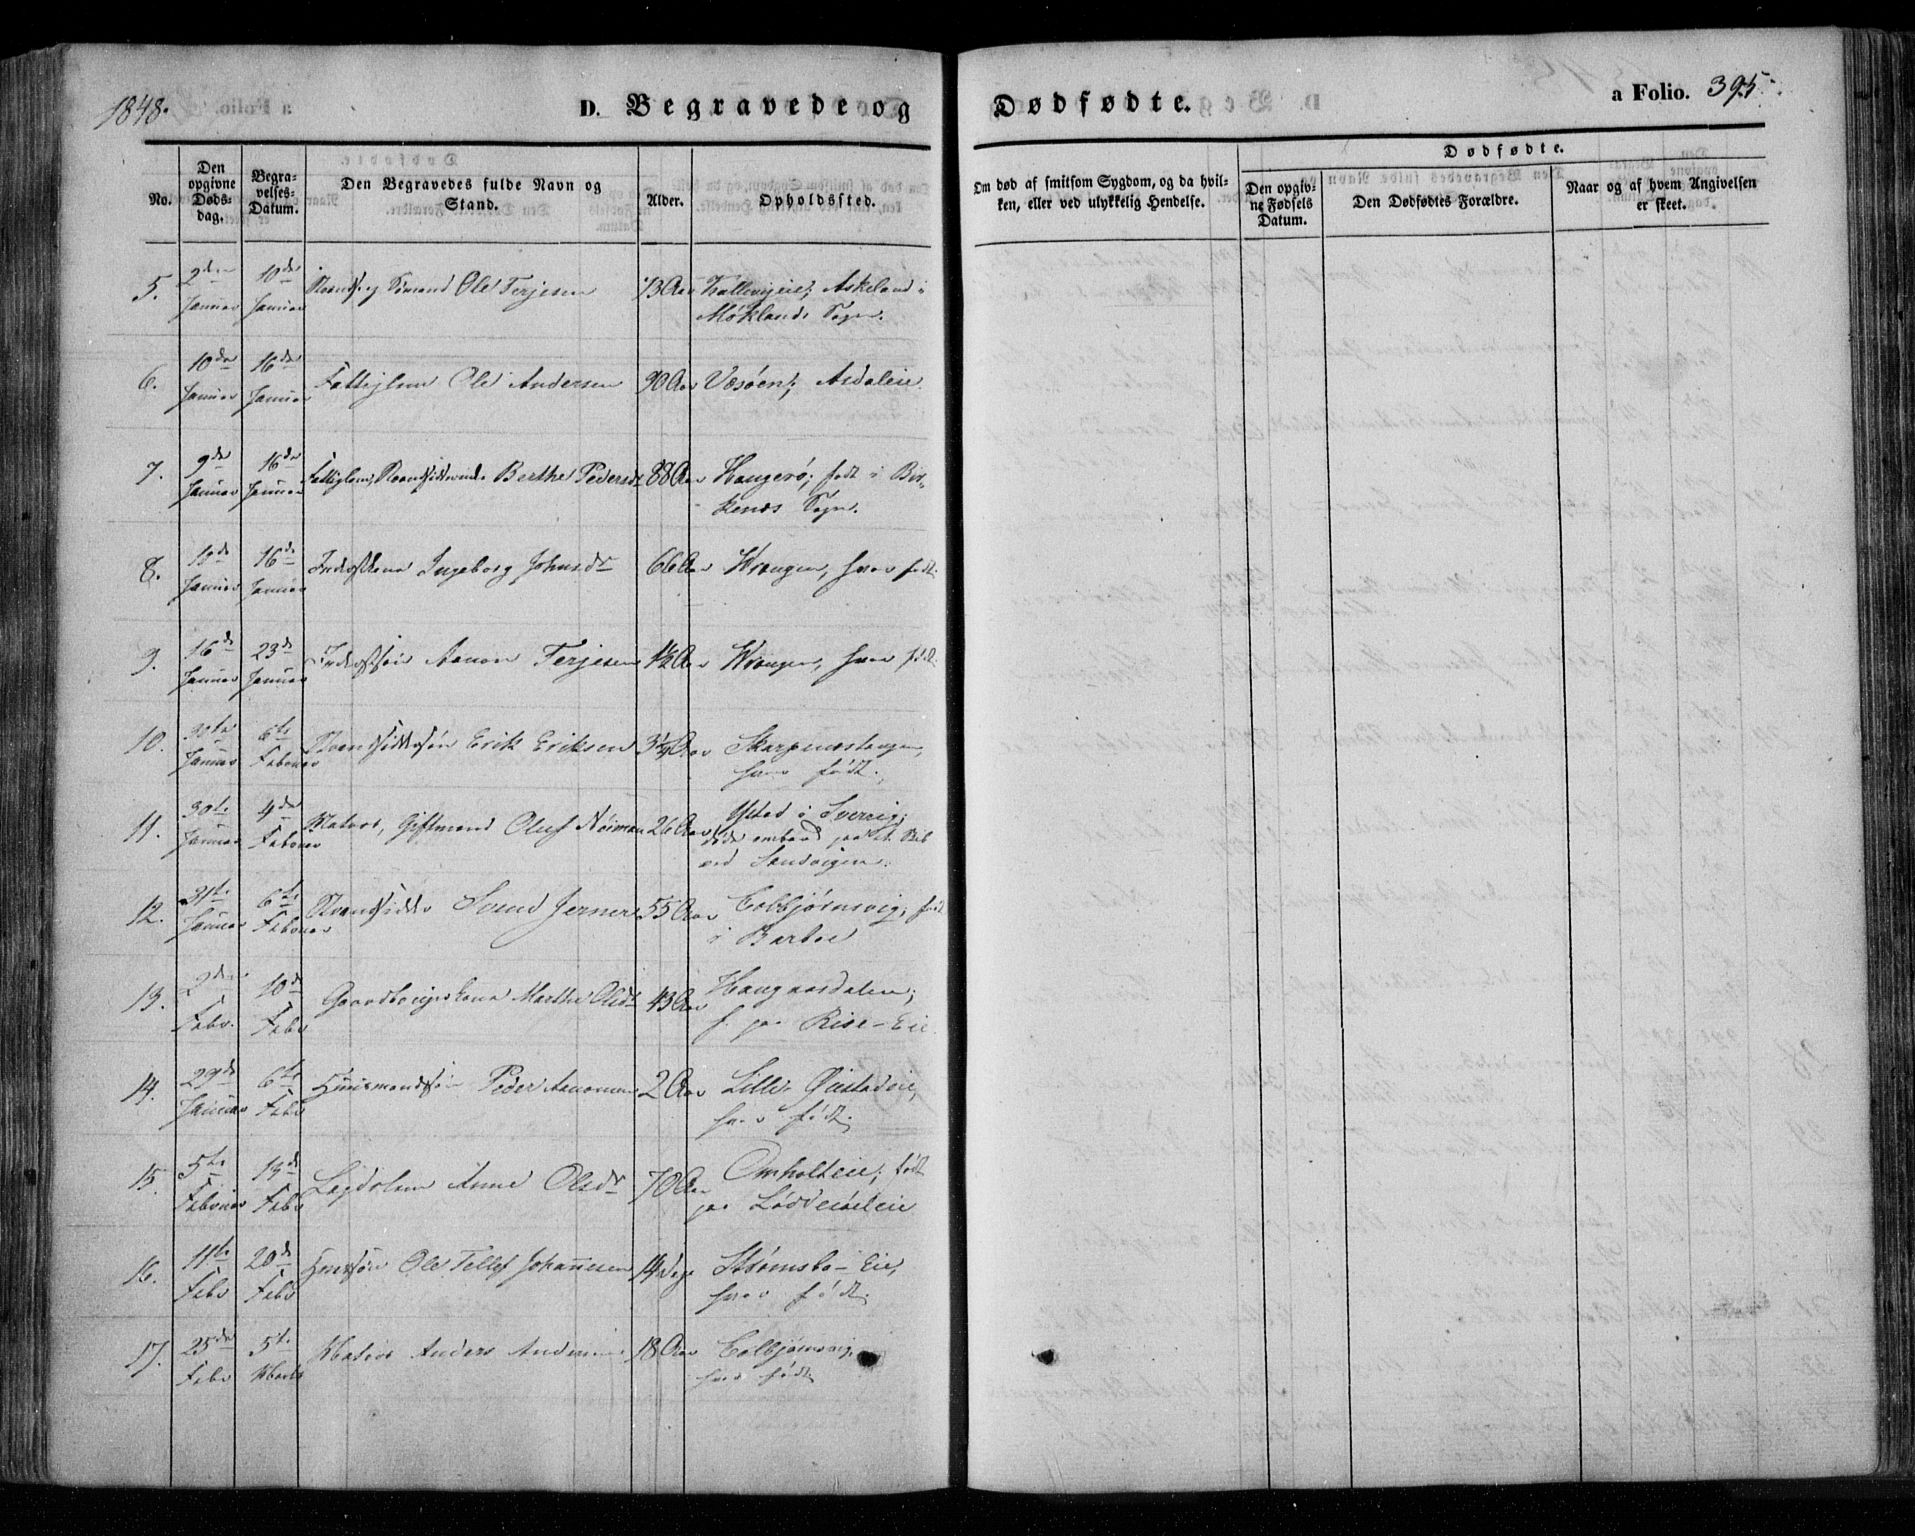 1848.
D. Begravede og
Dødfødte.
a Folio. 395.
No.
Den opgivne Døds-dag.
Begra-velses-Datum.
Den Begravedes fulde Navn og Stand.
Alder.
Opholdssted.
Om død af smitsom Sygdom, og da hvil-
ken, eller ved ulykkelig Hendelse.
Dødfødte.
Den opgiv-ne Fødsels Datum.
Den Dødfødtes Forældre.
Naar og af hvem Angivelsen er skeet.
5. 2den Januar 10de Januar Ole Terjesen 73 Aar Askeland i
Møklands Sogn.
6. 10de Januar 16de Januar Fattiglem Ole Andersen 90 Aar Væsøen; Asdaleie.
7. 9de Januar 16de Januar Fattiglem, Berthe Pedersdt 88 Aar Haugerø; født i Bir-
kenes Sogn.
8. 10de Januar 16de Januar Inderstkona Ingeborg Johnsdr 66 Aar Wrangen, hvor født.
9. 16de Januar 23de Januar Inderstsøn Aanon Terjesen Wrangen, hvor født.
10. 30te Januar 6te Februar Strandsiddersøn Erik Eriksen Aar Skarpnestangen,
hvor født.
11. 30te Januar 4de Februar Matros, Giftmand Oluf 26 Aar Ystad i Sverrig;
døde ombord paa et Skib
ved Sandvigen.
12. 31te Januar 6te Februar Strandsidder Svend Jernes 55 Aar Colbjørnsvig; født
i Barboe
13. 2den Febr. 10de Febr Gaardbrugerkona Marthe Olsdt 43 Aar Haugaasdalen;
f. paa Rise-Eie
14. 29de Januar 6te Febr Huusmandssøn Peder Aanonsen 2 Aar Lille Øiestadeie,
hvor født.
15. 5te Februar 13de Febr Lægdslem Anne Olsdr 70 Aar Omholteie; født
paa
16. 11te Febr 20de Febr Ole Tellef Johannesen 14 Dage Strømsbo-Eie,
hvor født.
17. 25de Febr 5te Marts Matros Anders Andersen 18 Aar Colbjørnsvig,
hvor født